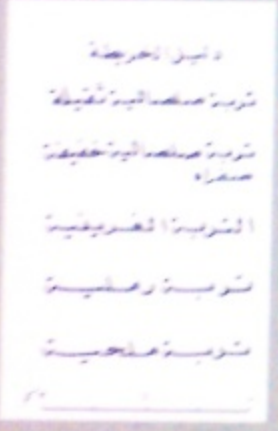 دليل الخريطة
تربة صلصالية ثقيلة
تربة صلصالية خفيفة
صفراء
التربة الغرينية
تربة رملية
تربة ملحية